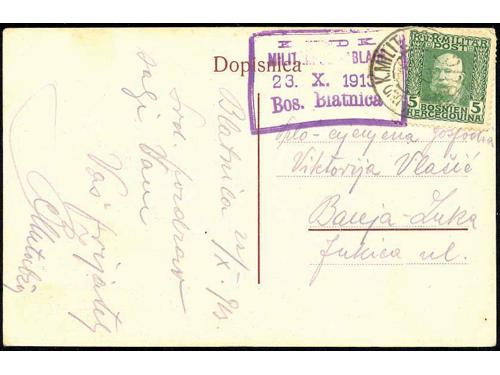 Dopisnica
MILIT
BLA
23. X. 1913
Bos. Blatnica
K.u.K. MILITÄR
POST
5 5
BOSNIEN
HERCEGOVINA
K.MILIT
Blatnica
Srd. pozdrav
šalje Vam
Vaš prijatelj
cijenjena gospodja
Viktorija Vlašić
Banja-Luka
Jukića ul.